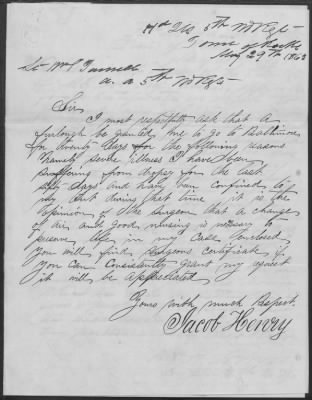 Hd Qts 5th Md Regt
May 29th 1863
Lt Wm
a. a 5th Md Regt
Sir
I most respectfully ask that a
furlough be granted me to go to Baltimore
for twenty days for the following reasons
Namely severe illness I have been
suffering from dropsy for the last
fifty days and have been confined to
my during that time it is the
opinion of the surgeon that a change
of air and good nursing is necessary to
preserve life in my case Enclosed
You will find surgeons certificate if
You can Consistently grant my request
it will be appreciated
Yours with much Respect
Jacob Henry